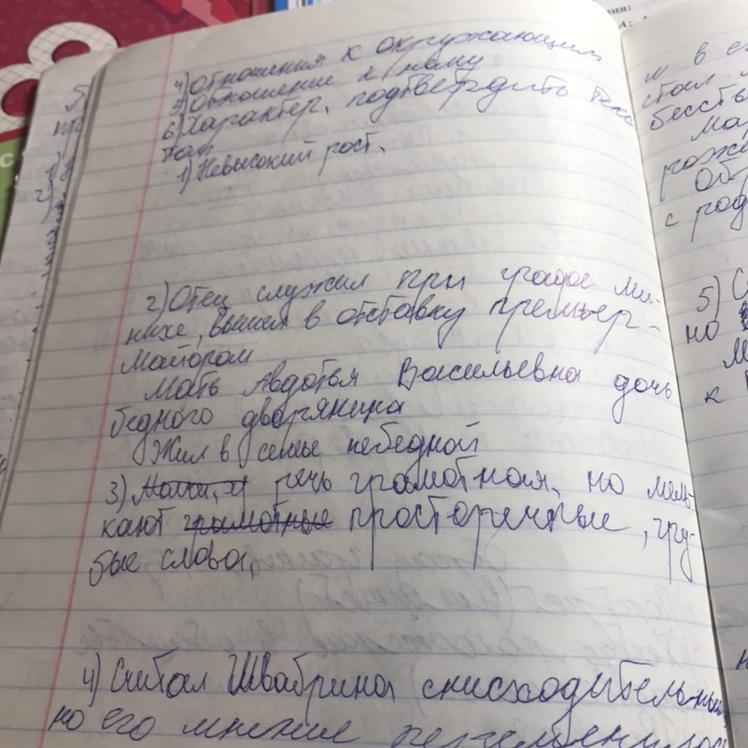 4) Отношения к окружающим
5) Отношение к нему
6) Характер, подтвердить текс
том
1) Невысокий рост.
2) Отец служил при графе Ми-
нихе, вышел в отставку премьер-
майором
Мать Авдотья Васильевна дочь
бедного дворянина
Жил в семье небедной
3) речь грамотная, но мель-
кают грамотные просторечные, гру-
бые слова,
4) Считал Швабрина снисходительным
но его мнение
и в
стал
бесст
Ма
рож
Об
с род
5) С
но
М
к